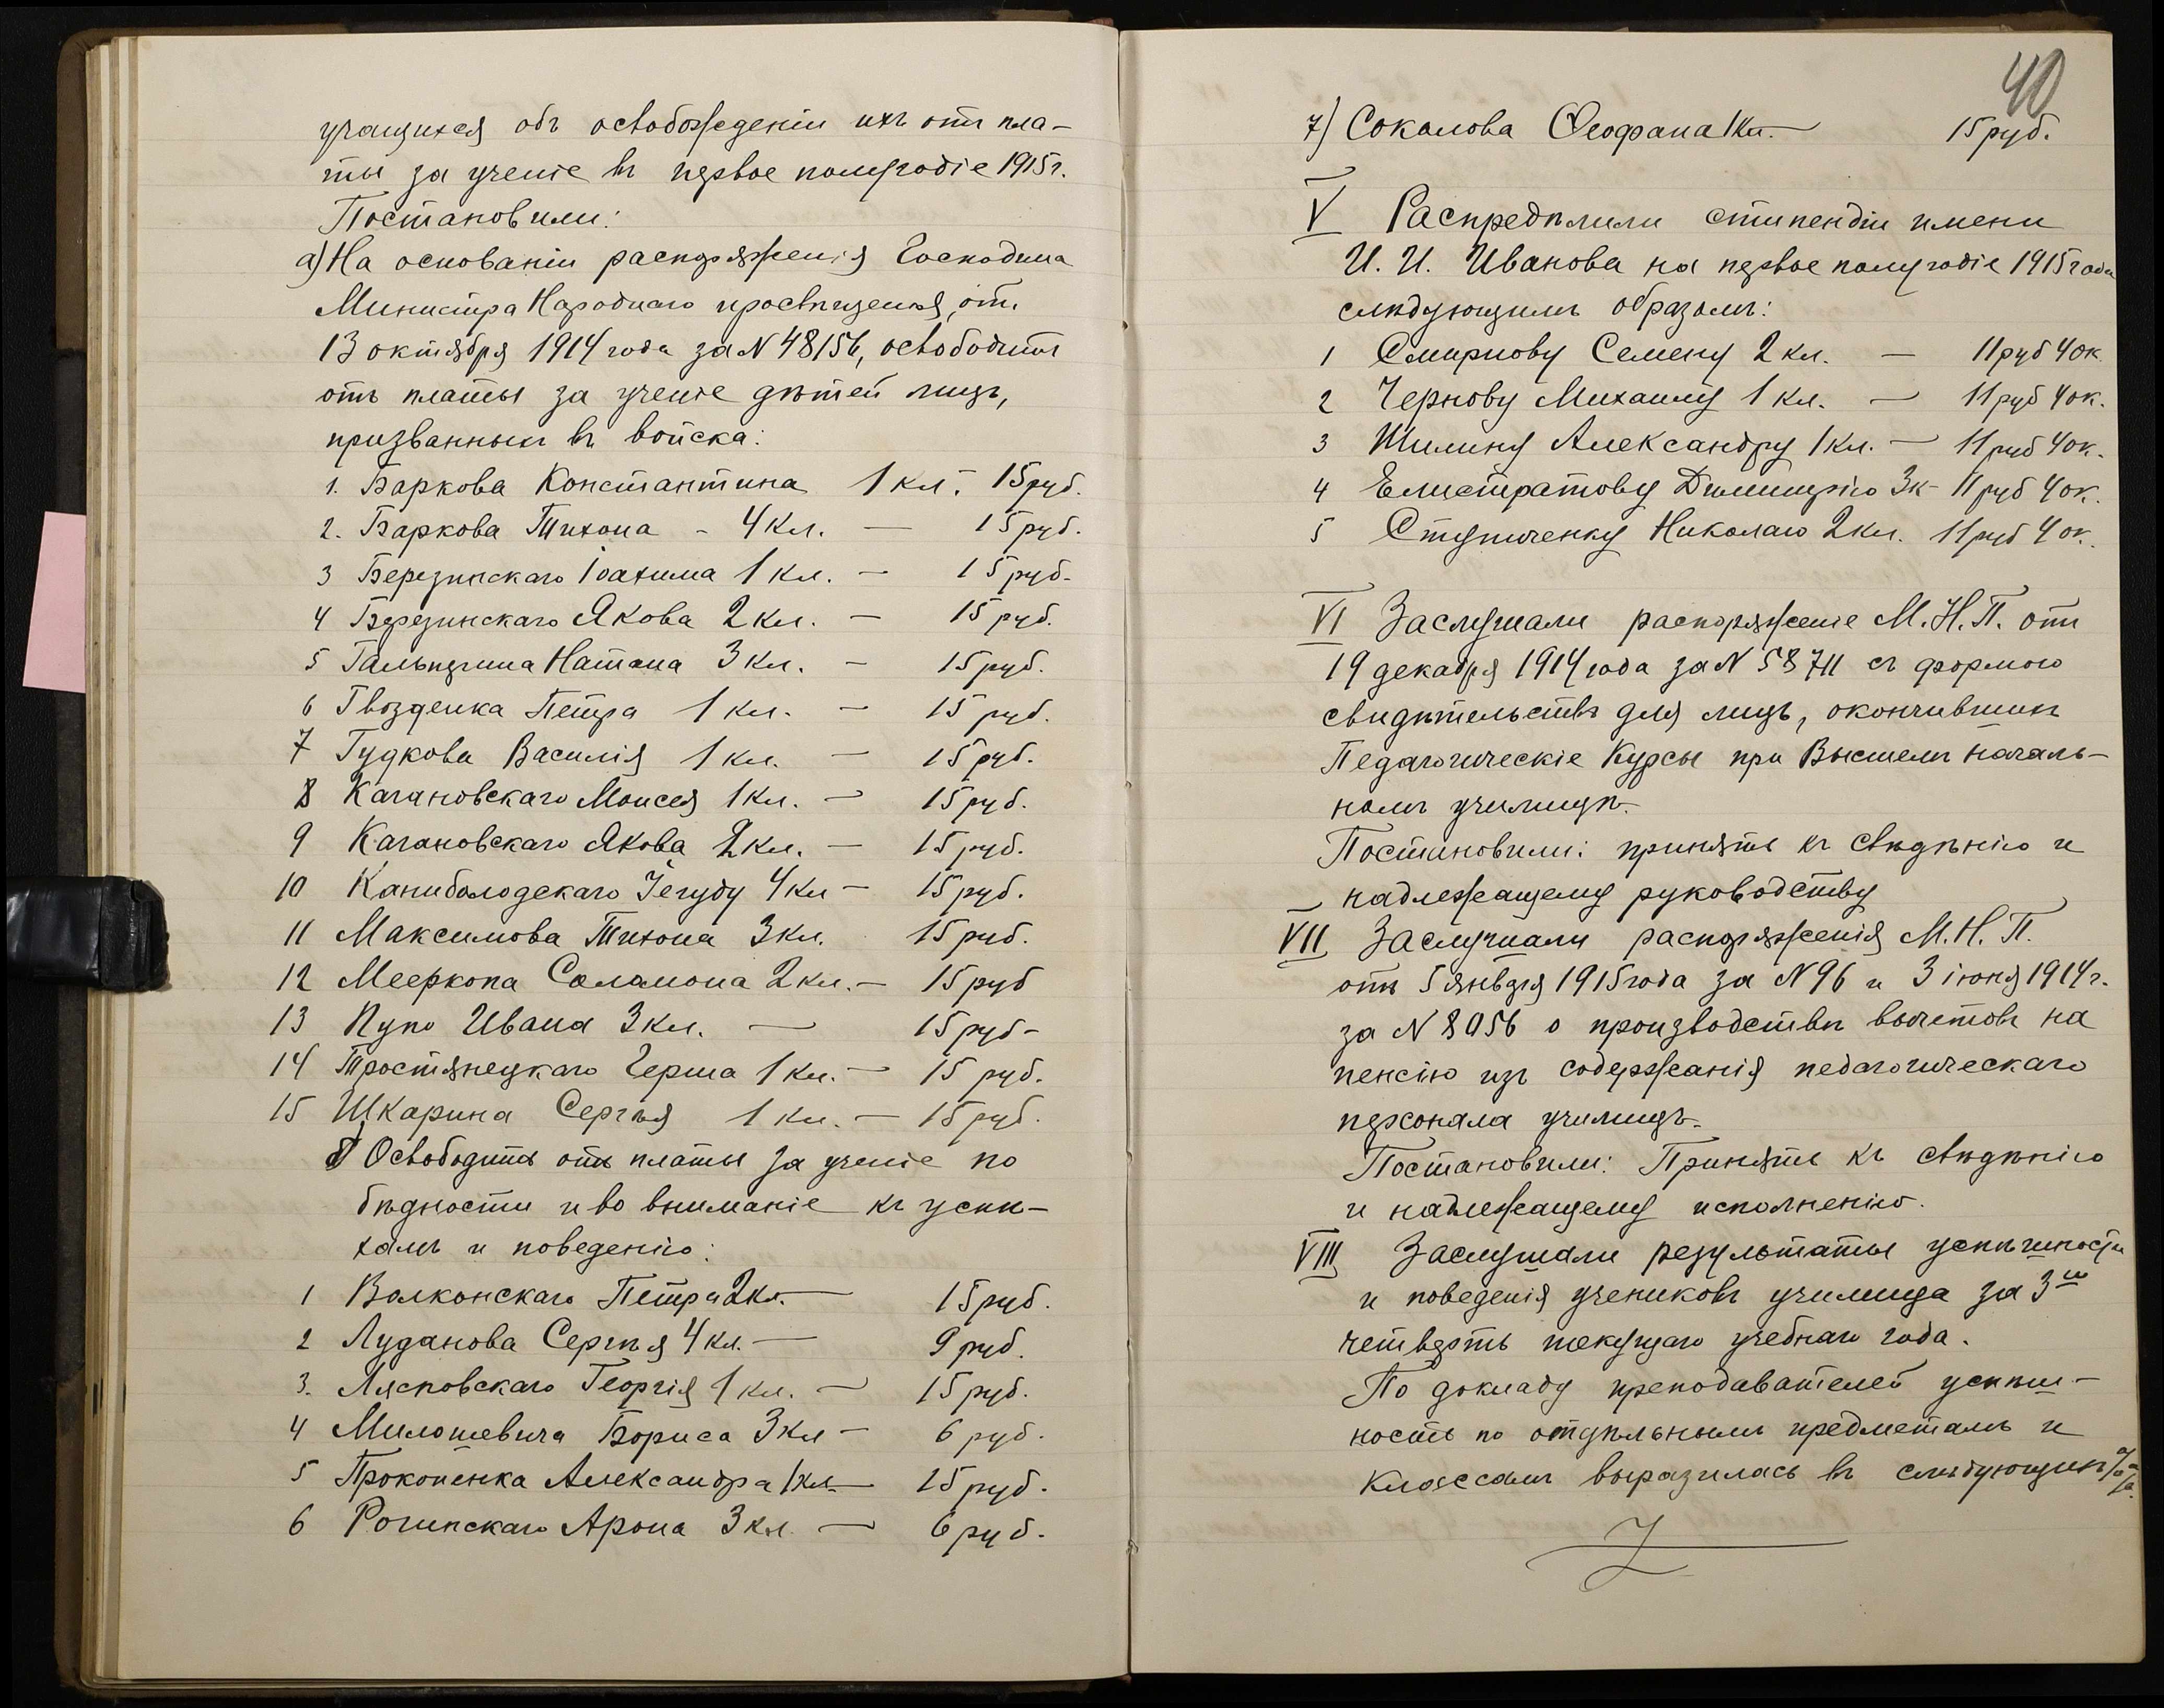 учащихся объ освобожденіи ихъ отъ пла-
ты за ученіе въ первое полугодіе 1915 г.
Постановили:
а) На основаніи распоряженія Господина
Министра Народнаго просвѣщенія, отъ
13 октября 1914 года за N 48156, освободить
отъ платы за ученіе дѣтей лицъ,
призванныхъ въ войска:
1. Баркова Константина 1 кл. 15 руб.
2. Баркова Тихона - 4 кл. — 15 руб.
3 Березинскаго Іоахима 1 кл. — 15 руб.
4 Березинскаго Якова 2 кл. — 15 руб.
5 Гальперина Натана 3 кл. — 15 руб.
6 Гвозденка Петра 1 кл. — 15 руб.
7 Гудкова Василія 1 кл. — 15 руб.
8 Кагановскаго Моисея 1 кл. — 15 руб.
9 Кагановскаго Якова 2 кл. — 15 руб.
10 Канибалодскаго Іегуду 4 кл — 15 руб.
11 Максимова Тихона 3 кл. 15 руб.
12 Мееркопа Соломона 2 кл. — 15 руб
13 Пупо Ивана 3 кл. — 15 руб-
14 Тростянецкаго Герша 1 кл. — 15 руб.
15 Шкарина Сергѣя 1 кл. — 15 руб.
б) Освободить отъ платы за ученіе по
бѣдности и во вниманіе къ успѣ-
хамъ и поведенію:
1 Волконскаго Петра 2 кл. — 15 руб.
2 Луданова Сергѣя 4 кл. — 9 руб.
3. Лясковскаго Георгія 1 кл. — 15 руб.
4 Милошевича Бориса 3 кл — 6 руб.
5 Прокопенка Александра 1 кл. — 15 руб.
6 Рогинскаго Арона 3 кл. — 6 руб.
40
7) Соколова Ѳеофана 1 кл. — 15 руб.
V Распредѣлили стипендіи имени
И. И. Иванова на первое полугодіе 1915 года
слѣдующимъ образомъ:
1 Смирнову Семену 2 кл. — 11 руб 40 к.
2 Чернову Михаилу 1 кл. — 11 руб 40 к.
3 Шилину Александру 1 кл. — 11 руб 40 к.
4 Елистратову Дмитрію 3 к — 11 руб 40 к.
5 Ступиченку Николаю 2 кл. 11 руб 40 к.
VI Заслушали распоряженіе М. Н. П. отъ
19 декабря 1914 года за N 58711 съ формою
свидѣтельствъ для лицъ, окончившихъ
Педагогическіе Курсы при Высшемъ началь-
номъ училищѣ.
Постановили: принять къ свѣдѣнію и
надлежащему руководству
VII Заслушали распоряженія М. Н. П.
отъ 5 января 1915 года за N 96 и 3 іюня 1914 г.
за N 8056 о производствѣ вычетовъ на
пенсію изъ содержанія педагогическаго
персонала училищъ.
Постановили: Принять къ свѣдѣнію
и надлежащему исполненію.
VIII Заслушали результаты успѣшности
и поведенія учениковъ училища за 3ю
четверть текущаго учебнаго года.
По докладу преподавателей успѣш-
ность по отдѣльнымъ предметамъ и
классамъ выразилась въ слѣдующихъ %%